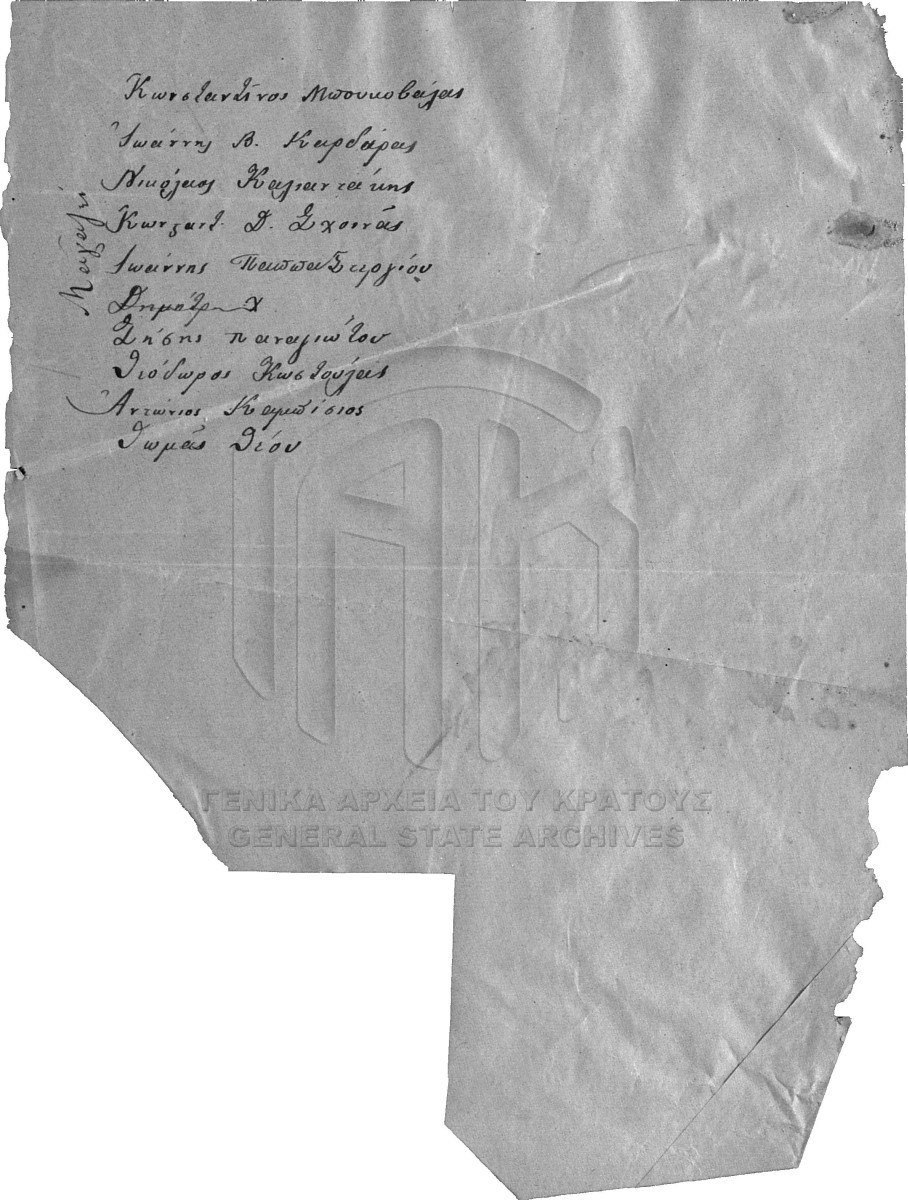 Κωνσταντίνος Μπουκοβάλας
Ἰωάννης Β. Καρδάρας
Νικόλαος Καλιαντάκης
Κωνσταντ. Δ. Σχοινάς
Ἰωάννης Παππαστεργίου
Δημήτρ
Ζήσης Παναγιώτου
Θεόδωρος Κωστούλας
Ἀντώνιος Καμπίσιος
Θωμᾶς Θέου
ΓΕΝΙΚΑ ΑΡΧΕΙΑ ΤΟΥ ΚΡΑΤΟΥΣ
GENERAL STATE ARCHIVES